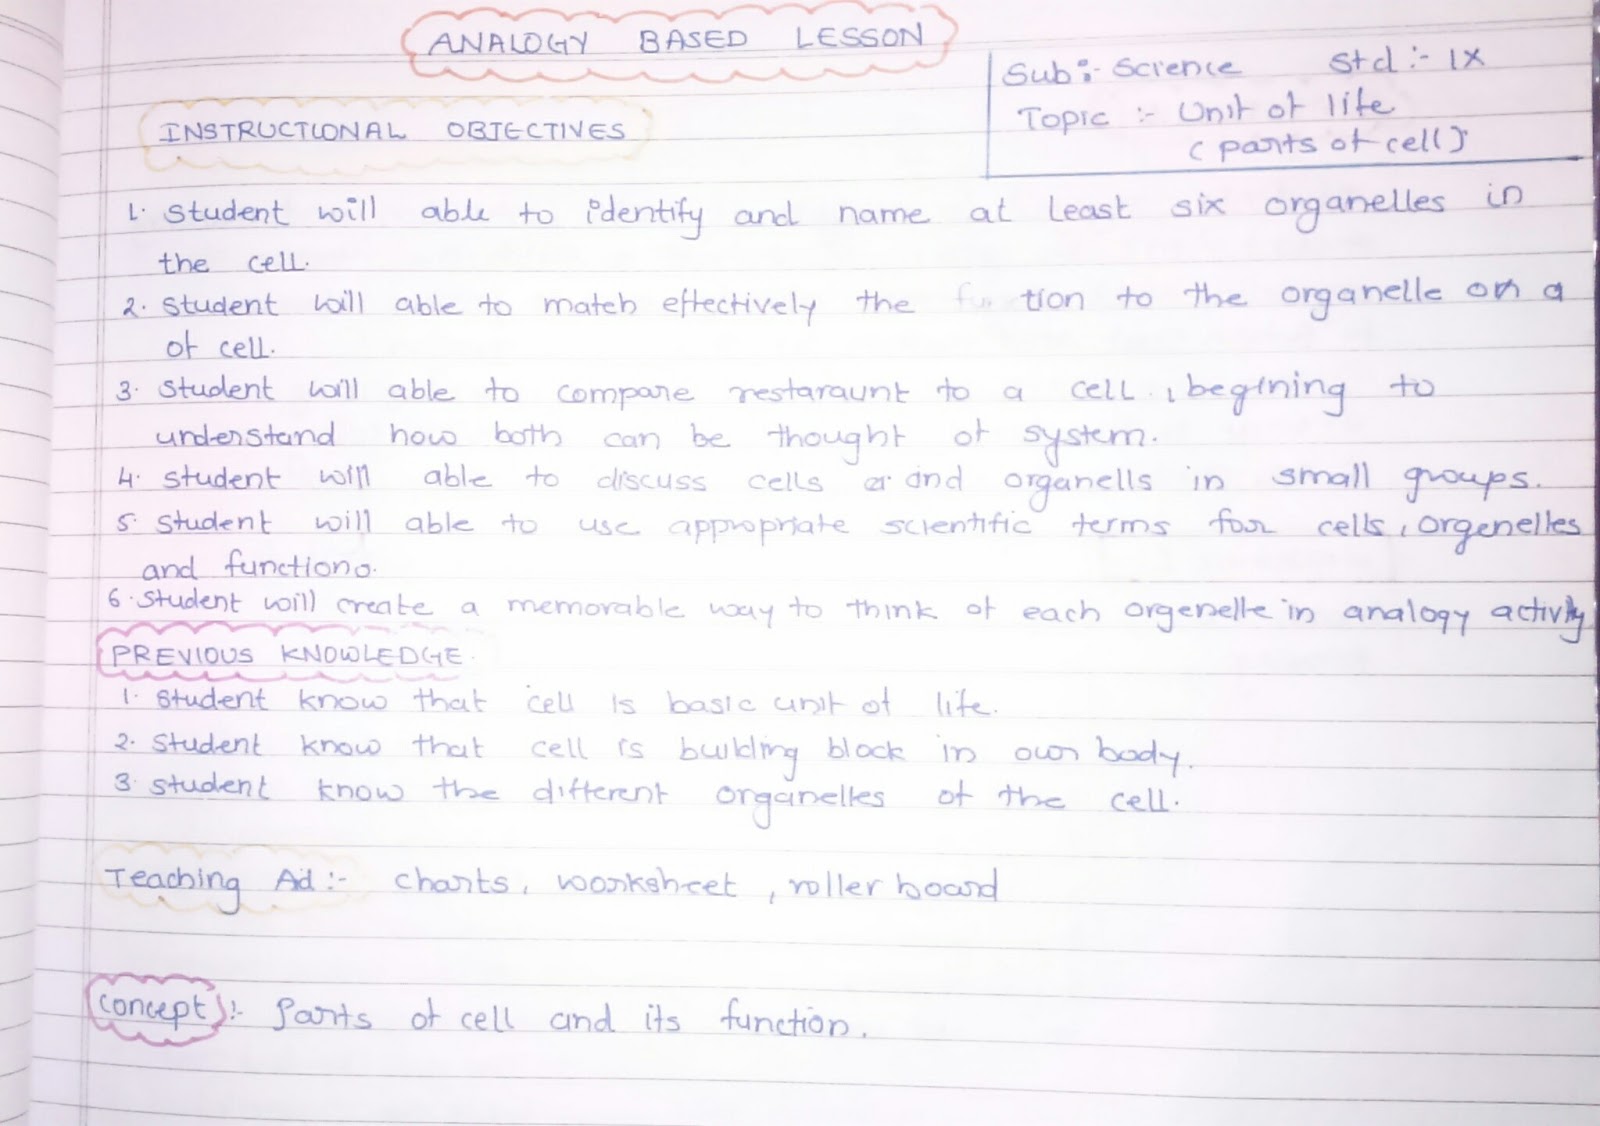 ANALOGY BASED LESSON
Sub :- Science Std :- IX
Topic :- Unit of life
(parts of cell)
INSTRUCTIONAL OBJECTIVES
1. Student will able to identify and name at least six organelles in
the cell.
2. Student will able to match effectively the function to the organelle on a
of cell.
3. Student will able to compare restaraunt to a cell, begining to
understand how both can be thought of system.
4. Student will able to discuss cells and organells in small groups.
5. Student will able to use appropriate scientific terms for cells, orgenelles
and functions.
6. Student will create a memorable way to think of each orgenelle in analogy activity
PREVIOUS KNOWLEDGE.
1. Student know that cell is basic unit of life.
2. Student know that cell is building block in our body.
3. Student know the different organelles of the cell.
Teaching Aid :- charts, worksheet, roller board
Concept :- Parts of cell and its function.